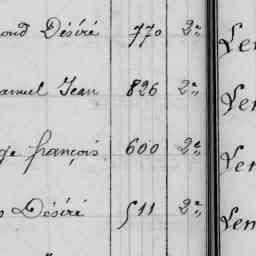 ond Désiré 770 2e Ven
anuel Jean 826 2e Ven
ge françois 600 2e Ven
s Désiré 511 2e Ven